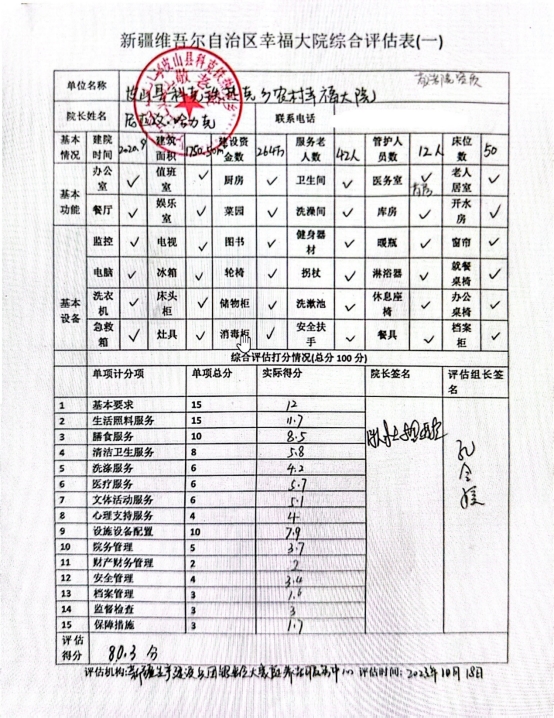 新疆维吾尔自治区幸福大院综合评估表(一)
单位名称 皮山县科克铁热克乡农村幸福大院
院长姓名 哈力克 联系电话
基本情况 建院时间 2020.9 建筑面积 1750.50m 建设资金数 264万 服务老人数 42人 管护人员数 12人 床位数 50
基本功能 办公室 ✓ 值班室 ✓ 厨房 ✓ 卫生间 ✓ 医务室 ✓ 老人居室 ✓
餐厅 ✓ 娱乐室 ✓ 菜园 ✓ 洗澡间 ✓ 库房 ✓ 开水房 ✓
基本设备 监控 ✓ 电视 ✓ 图书 ✓ 健身器材 ✓ 暖瓶 ✓ 窗帘 ✓
电脑 ✓ 冰箱 ✓ 轮椅 ✓ 拐杖 ✓ 淋浴器 ✓ 就餐桌椅 ✓
洗衣机 ✓ 床头柜 ✓ 储物柜 ✓ 洗漱池 ✓ 休息座椅 ✓ 办公桌椅 ✓
急救箱 ✓ 灶具 ✓ 消毒柜 ✓ 安全扶手 ✓ 餐具 ✓ 档案柜 ✓
综合评估打分情况(总分 100 分)
单项计分项 单项总分 实际得分 院长签名 评估组长签名
1 基本要求 15 12
2 生活照料服务 15 11.7
3 膳食服务 10 8.5
4 清洁卫生服务 8 5.8
5 洗涤服务 6 4.2
6 医疗服务 6 5.7
7 文体活动服务 6 5.1
8 心理支持服务 4 4
9 设施设备配置 10 7.9
10 院务管理 5 3.7
11 财产财务管理 2 2
12 安全管理 4 3.4
13 档案管理 3 1.6
14 监督检查 3 3
15 保障措施 3 1.7
孔令
评估得分 80.3 分
评估机构:新疆生产建设兵团 评估时间: 2023年10月18日